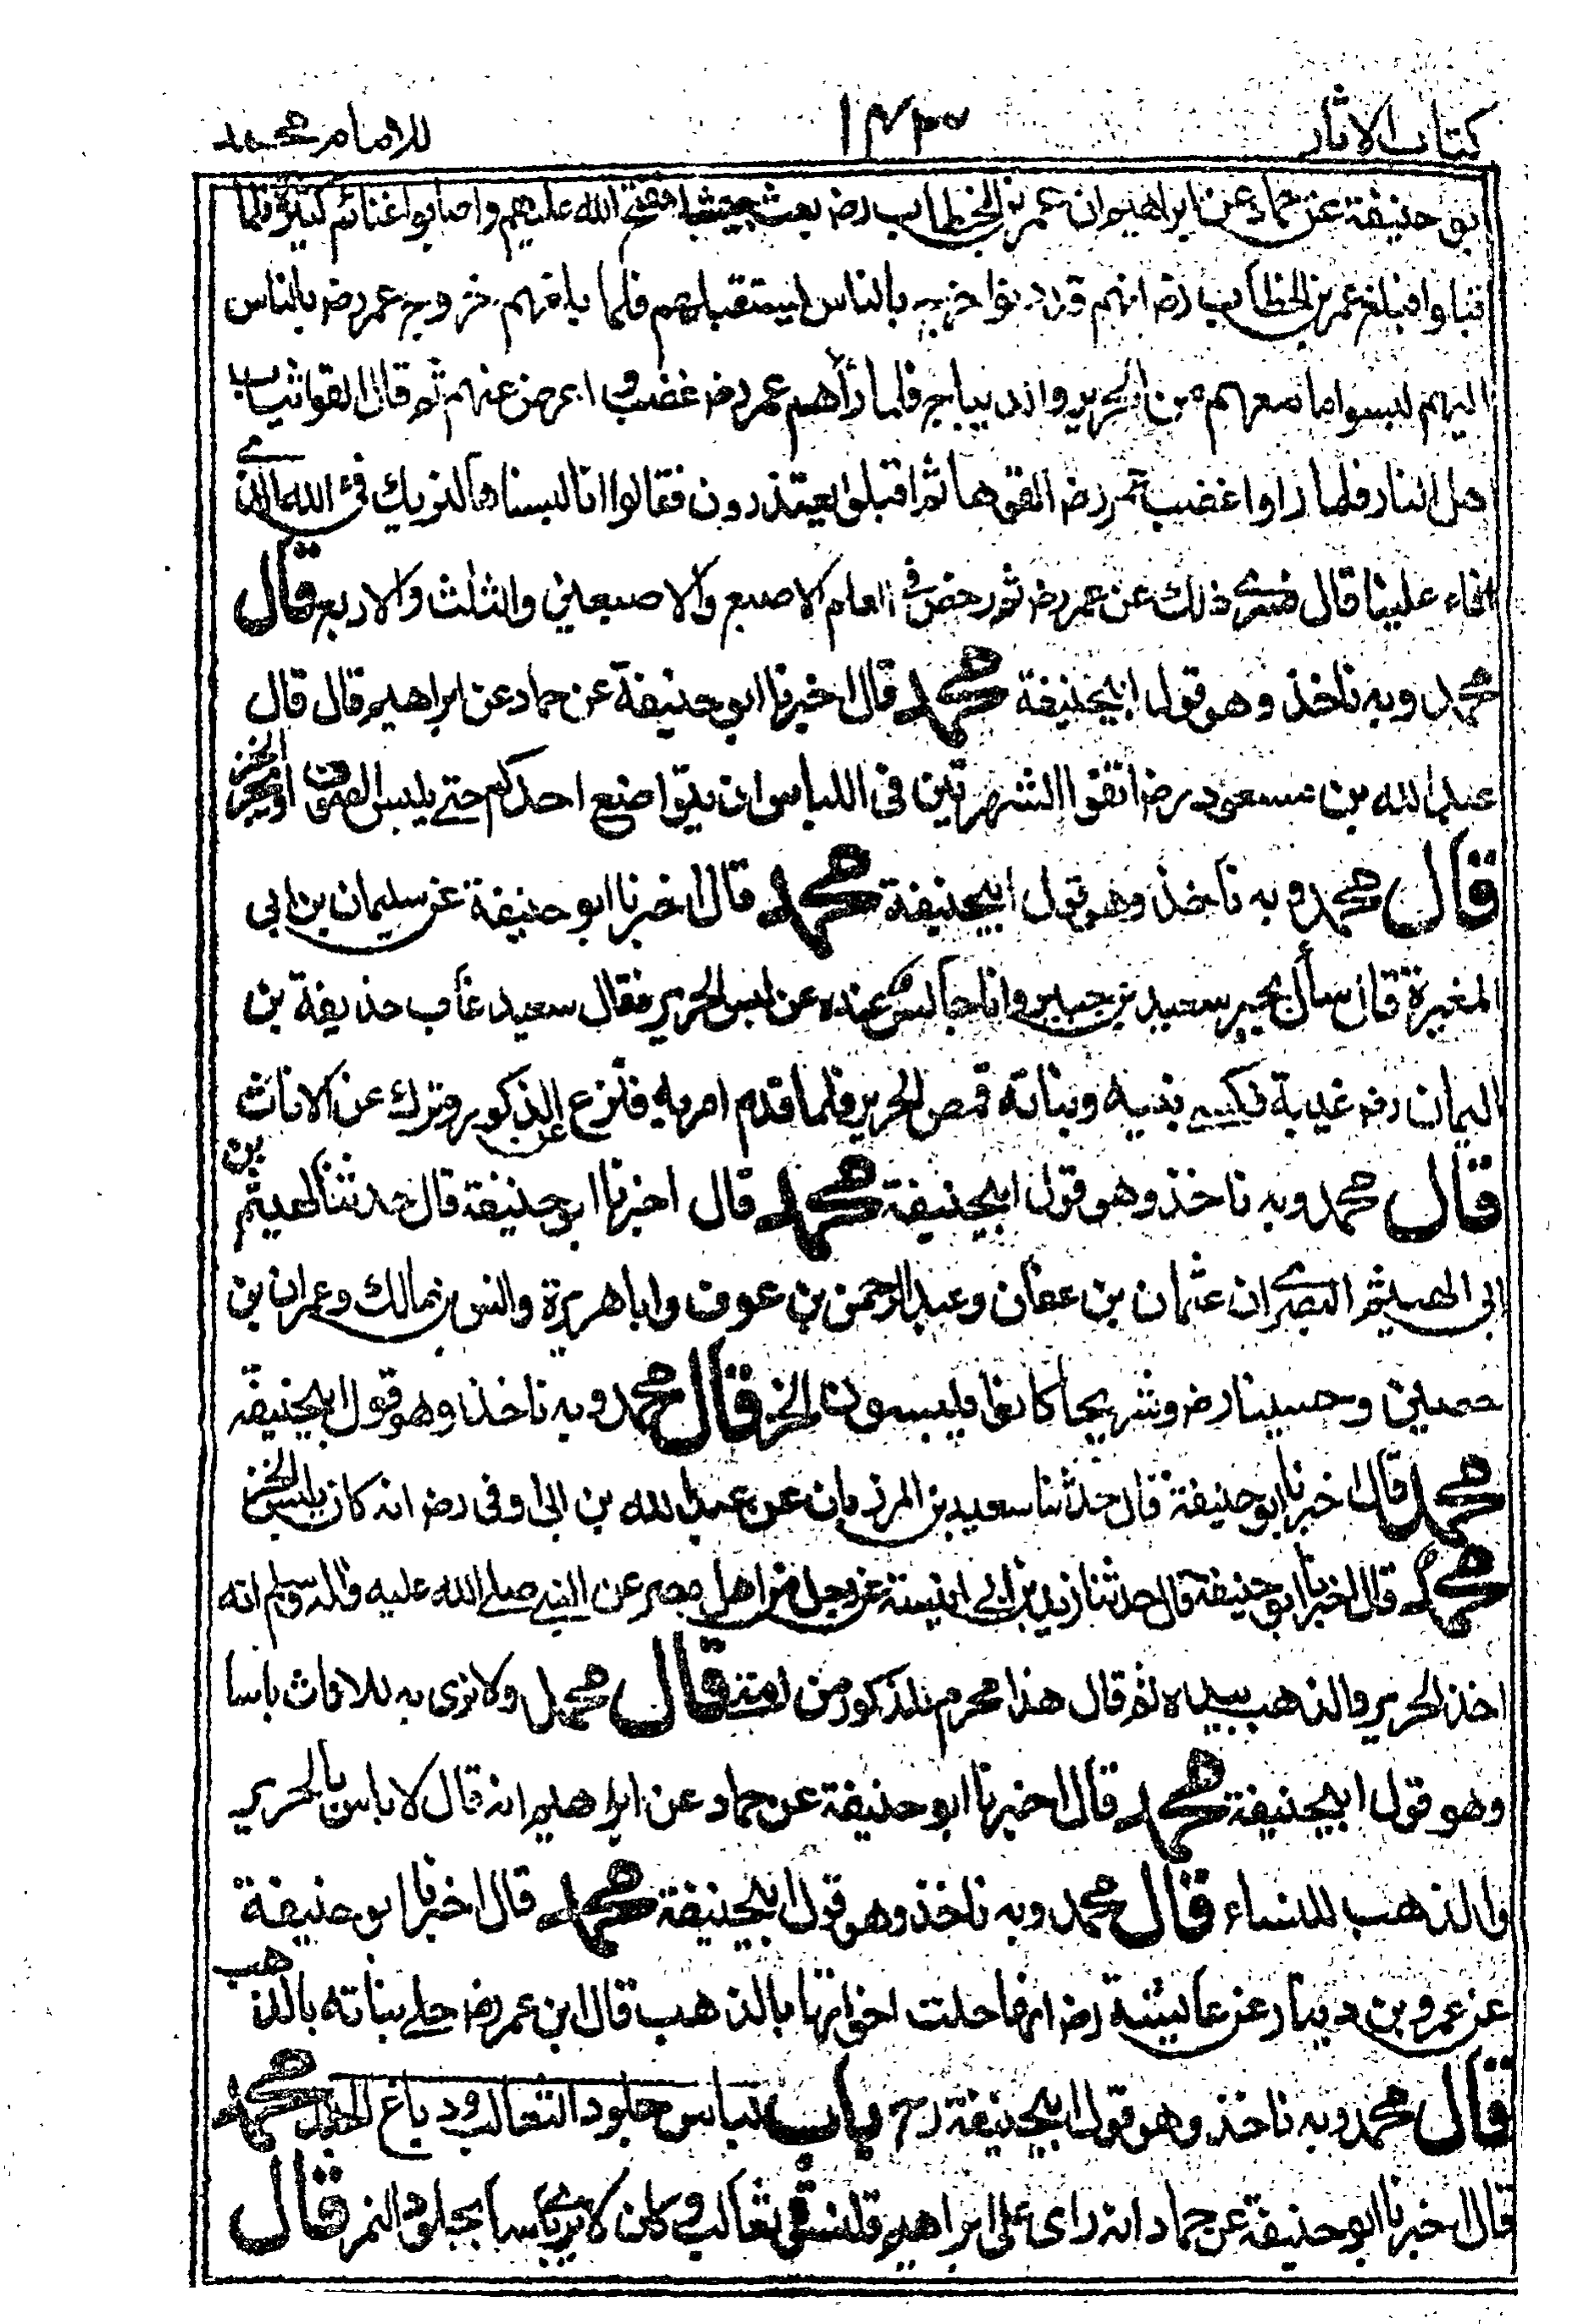 كتاب الاثار ١٤٣ للامام محمد
بو حنيفة عن حماد عن ابراهيم ان عمر بن الخطاب رض بعث جيشا ففتح الله عليهم واصابوا غنائم كثيرة فلما
اقبلوا فبلغ عمر بن الخطاب رض انهم قد دنوا خرج بالناس ليستقبلهم فلما بلغهم خروج عمر رض بالناس
اليهم لبسوا ما معهم من الحرير والديباج فلما رأهم عمر رض غضب و اعرض عنهم ثم قال القوا ثياب
اهل النار فلما راوا غضب عمر رض القوها ثم اقبلوا يعتذرون فقالوا انا لبسناها لنريك فئ الله الذي
افاء علينا قال فسري ذلك عن عمر رض ثم رخص في العلم الاصبع والاصبعين والثلث والاربع قال
محمد وبه ناخذ وهو قول ابيحنيفة محمد قال اخبرنا ابو حنيفة عن حماد عن ابراهيم قال قال
عبد الله بن مسعود رض اتقوا الشهرتين في اللباس ان يتواضع احدكم حتے يلبس الصوف او يتبختر حتے يلبس الخز
قال محمد وبه ناخذ وهو قول ابيحنيفة محمد قال اخبرنا ابو حنيفة عن سليمان بن ابي
المغيرة قال سأل بحير سعيد بن جبير وانا جالس عنده عن لبس الحرير فقال سعيد غاب حذيفة بن
اليمان رض غيبة فكسے بنيه وبناته قمص الحرير فلما قدم امر به فنزع عن الذكور وترك عن الاناث
قال محمد وبه ناخذ وهو قول ابيحنيفة محمد قال اخبرنا ابو حنيفة قال حدثنا الهيثم بن
ابي الهيثم البصري ان عثمان بن عفان وعبد الرحمن بن عوف وابا هريرة وانس بن مالك وعمران بن
حصين وحسينا رض وشريحا كانوا يلبسون الخز قال محمد وبه ناخذ وهو قول ابيحنيفة
محمد قال اخبرنا ابو حنيفة قال حدثنا سعيد بن المرزبان عن عبد الله بن ابي اوفى رض انه كان يلبس الخز
محمد قال اخبرنا ابو حنيفة قال حدثنا زيد بن ابي انيسة عن رجل من اهل مصر عن النبي صلے الله عليه واله وسلم انه
اخذ الحرير والذهب بيده ثم قال هذا محرم للذكور من امتے قال محمد ولا نرى به للاناث باسا
وهو قول ابيحنيفة محمد قال اخبرنا ابو حنيفة عن حماد عن ابراهيم انه قال لا باس بالحرير
والذهب للنساء قال محمد وبه ناخذ وهو قول ابيحنيفة محمد قال اخبرنا ابو حنيفة
عن عمرو بن دينار عن عايشة رض انها حلت اخواتها بالذهب قال ابن عمر رض حلے بناته بالذهب
قال محمد وبه ناخذ وهو قول ابيحنيفة رح باب لباس جلود الثعالب ودباغ الجلد محمد
قال اخبرنا ابو حنيفة عن حماد انه راى على ابراهيم قلنسوة ثعالب وكان لا يرى باسا بجلود النمر قال